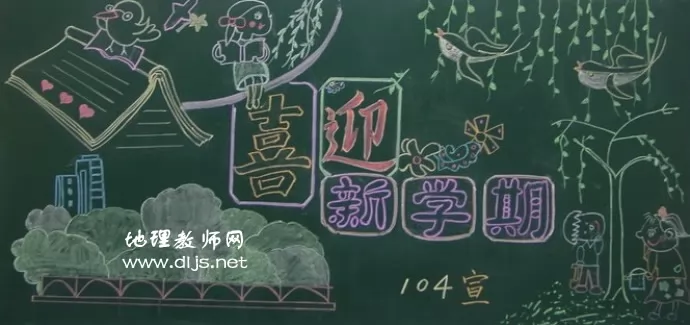 喜迎
新学期
地理教师网
www.dljs.net
104宣